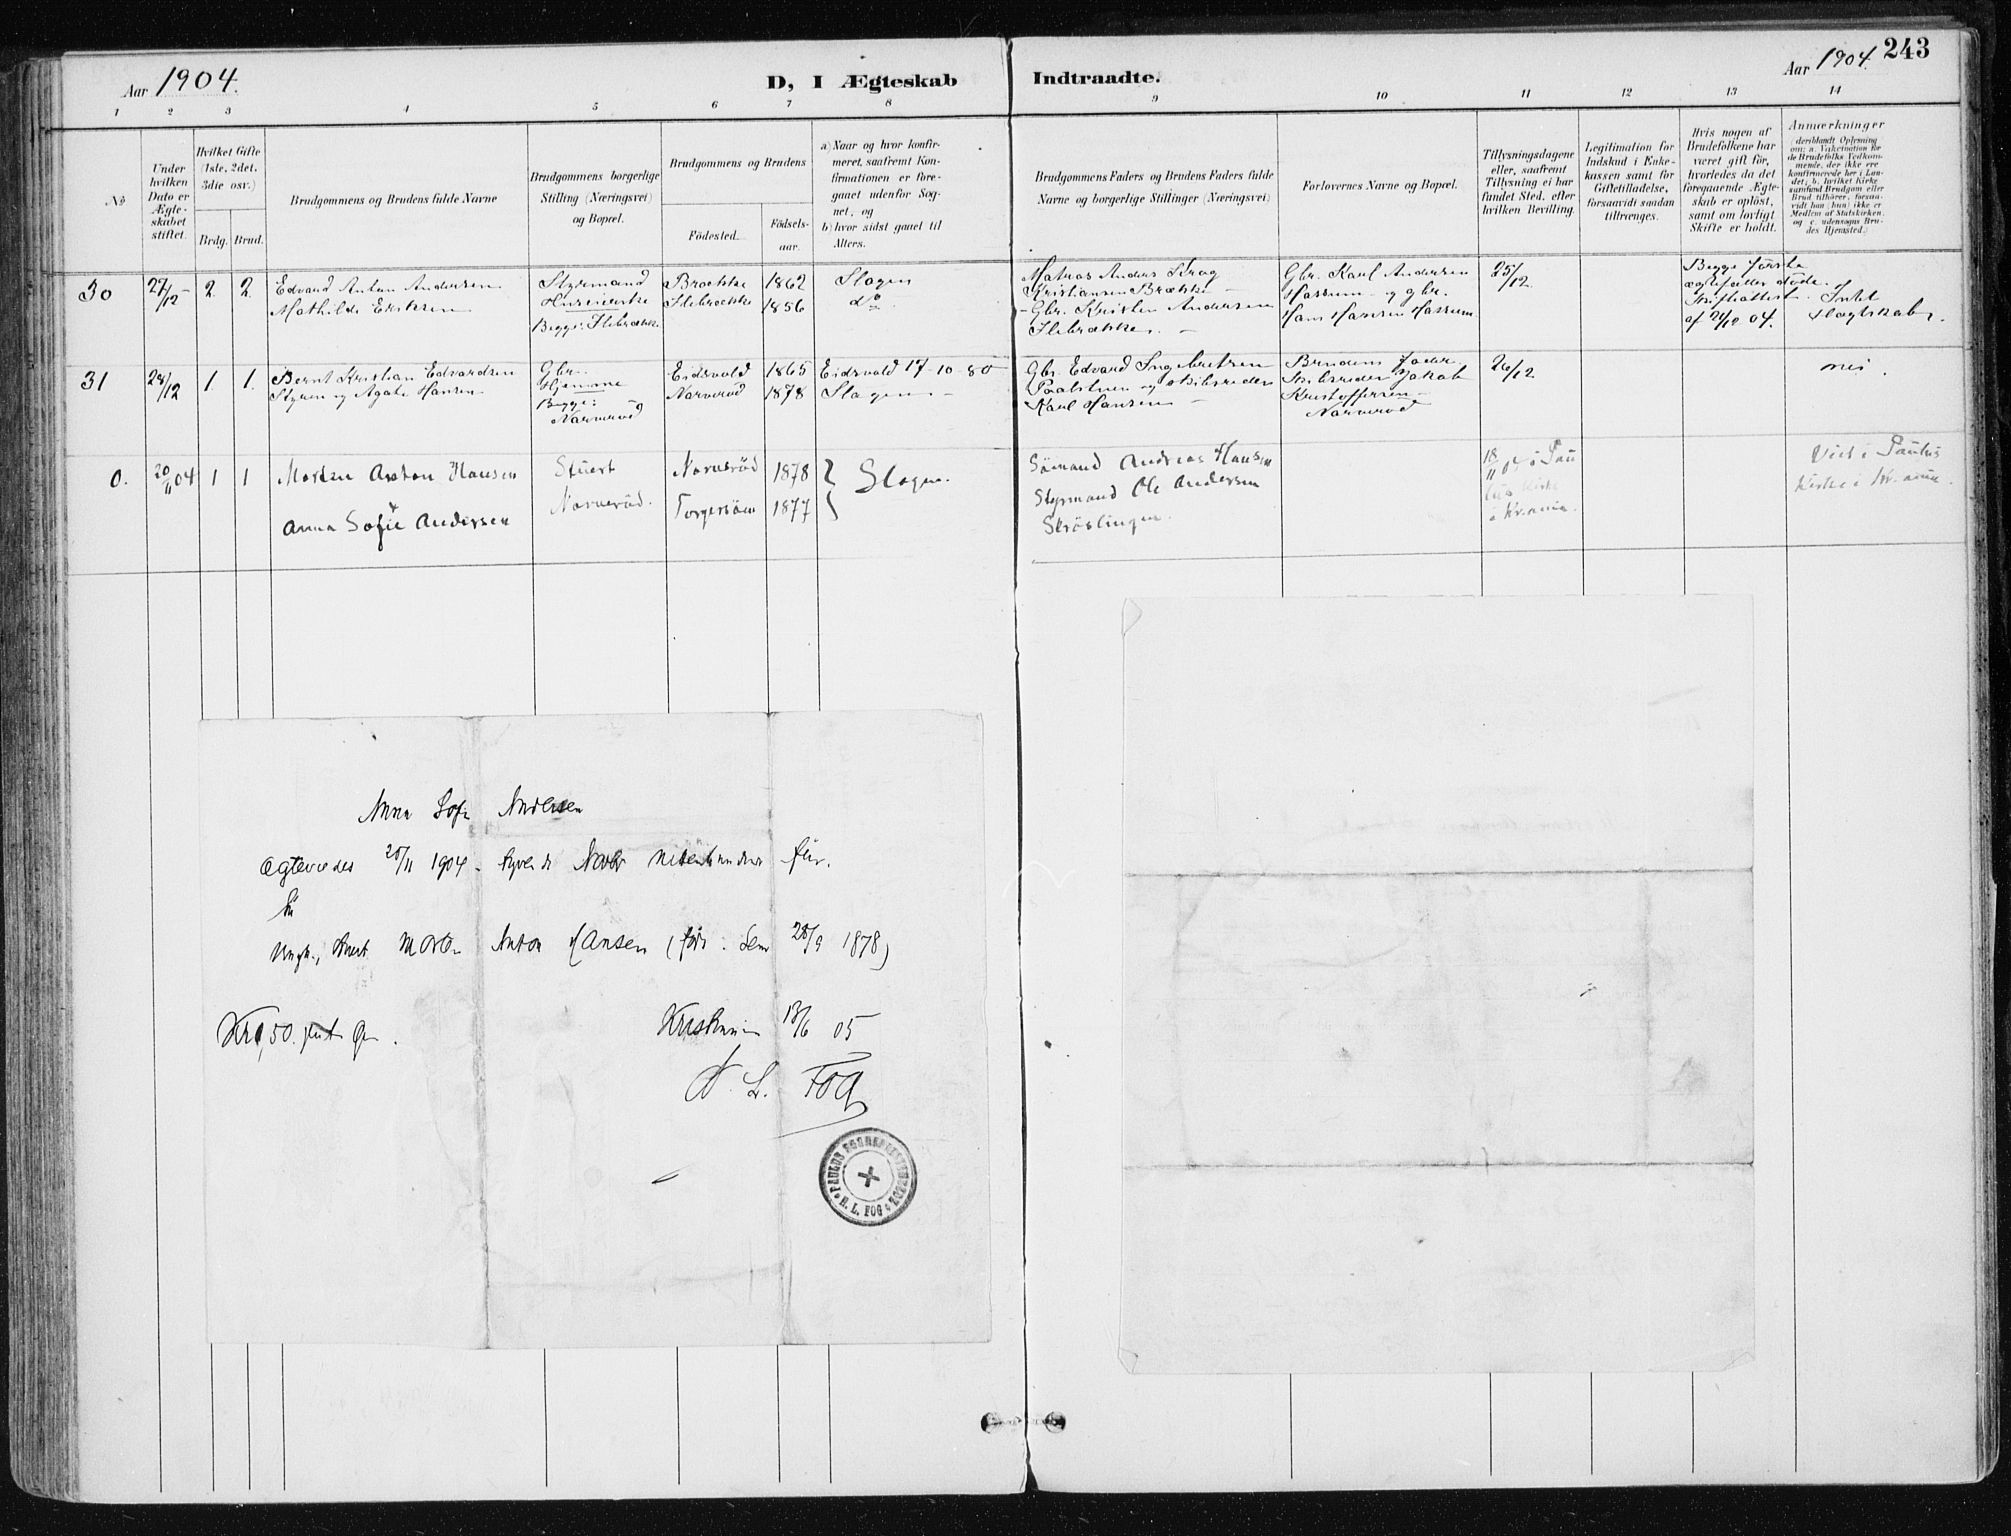 Aar 1904.
D, I Ægteskab Indtraadte.
Aar 1904. 243
1 2 3 4 5 6 7 8 9 10 11 12 13 14
No
Under hvilken Dato er Ægteskabet stiftet.
Hvilket Gifte (1ste, 2det, 3die osv.)
Brdg. Brud.
Brudgommens og Brudens fulde Navne
Brudgommens borgerlige Stilling (Næringsvei) og Bopæl.
Brudgommens og Brudens
Fødested.
Fødsels-aar.
a) Naar og hvor konfirmeret, saafremt Konfirmationen er foregaaet udenfor Sognet, og
b) hvor sidst gaaet til Alters.
Brudgommens Faders og Brudens Faders fulde Navne og borgerlige Stillinger (Næringsvei)
Forlovernes Navne og Bopæl.
Tillysningsdagene eller, saafremt Tillysning ei har fundet Sted, efter hvilken Bevilling.
Legitimation for Indskud i Enkekassen samt for Giftetilladelse, forsaavidt saadan tiltrænges.
Hvis nogen af Brudefolkene har været gift før, hvorledes da det foregaaende Ægteskab er opløst, samt om lovligt Skifte er holdt.
Anmærkninger
(deriblandt Oplysning om: a. Vakcination for de Brudefolks Vedkommende, der ikke ere konfirmerede her i Landet; b. hvilket Kirkesamfund Brudgom eller Brud tilhører, forsaavidt han (hun) ikke er Medlem af Statskirken, og c. udensogns Brudes Hjemsted.)
30 27/12 2 2 Edvard Anton Andersen
Mathilde Eriksen
Styrmand
Begge: Ilebrække
Brække 1862
Ilebrække 1856
Slagen
do
Matros Anders
Kristiansen Brække
Gbr. Kristen Andersen
Ilebrække.
Gbr. Karl Andersen
Hassum og gbr.
Hans Hansen Hassum
25/12
Begge første
ægtefæller døde.
Skifteattest
af 21/12 04.
Intet
Slægtskab.
31 28/12 1. 1. Bernt Kristian Edvardsen
Styren og Agate Hansen
Gbr.
Begge:
Narverød
Eidsvold 1865
Narverød 1878
Eidsvold 17-10-80
Slagen
Gbr. Edvard Ingebretsen
og skibsreder
Karl Hansen
Brudens fader
Skibsreder Jakob
Kristoffersen
Narverød
26/12
nei.
0. 20/11 04 1 1 Morten Anton Hansen
Anna Sofie Andersen
Stuert
Narverød.
Narverød 1878
Torgersøen 1877
Slagen.
Sømand Andreas Hansen
Styrmand Ole Andersen
18/11 04 i Pau
lus Kirke
i Kr.ania.
Viet i Paulus
Kirke i Kr.ania.
Anna Sofie Andersen
Ægteviedes 20/11 1904 - tyvende Novbr nittenhundrede fire.
til
Ungk., Stuert Morten Anton Hansen (født: Sem 28/9 1878)
Kr 0,50. femti Øre.
Kristiania 13/6 05
H. L. Fog
PAULUS SOGNEPRESTEEMBEDE
H. L. FOG